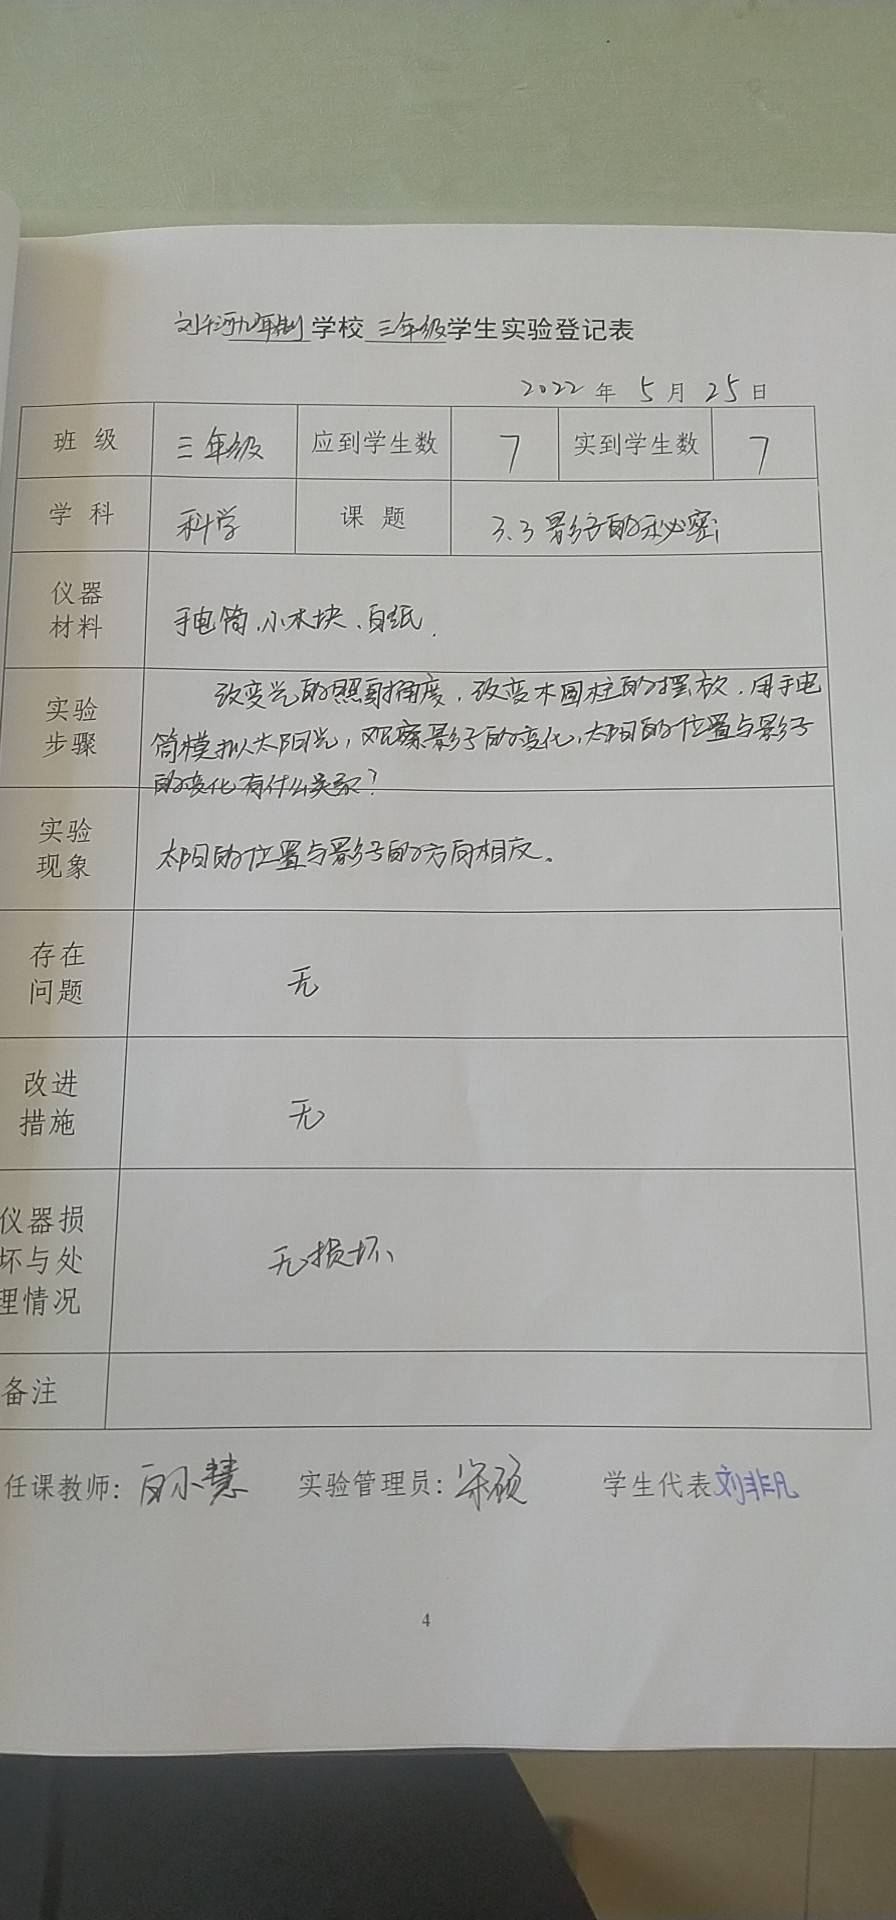 刘河九年制学校三年级学生实验登记表
2022年5月25日
班级 三年级 应到学生数 7 实到学生数 7
学科 科学 课题 3.3影子的秘密
仪器
材料
手电筒、小木块、白纸.
实验
步骤
改变光的照射角度,改变木圆柱的摆放,用手电
筒模拟太阳光,观察影子的变化,太阳的位置与影子
的变化有什么关系?
实验
现象
太阳的位置与影子的方向相反。
存在
问题
无
改进
措施
无
仪器损
坏与处
理情况
无损坏、
备注
任课教师: 白小慧 实验管理员: 宋硕 学生代表 刘非凡
4